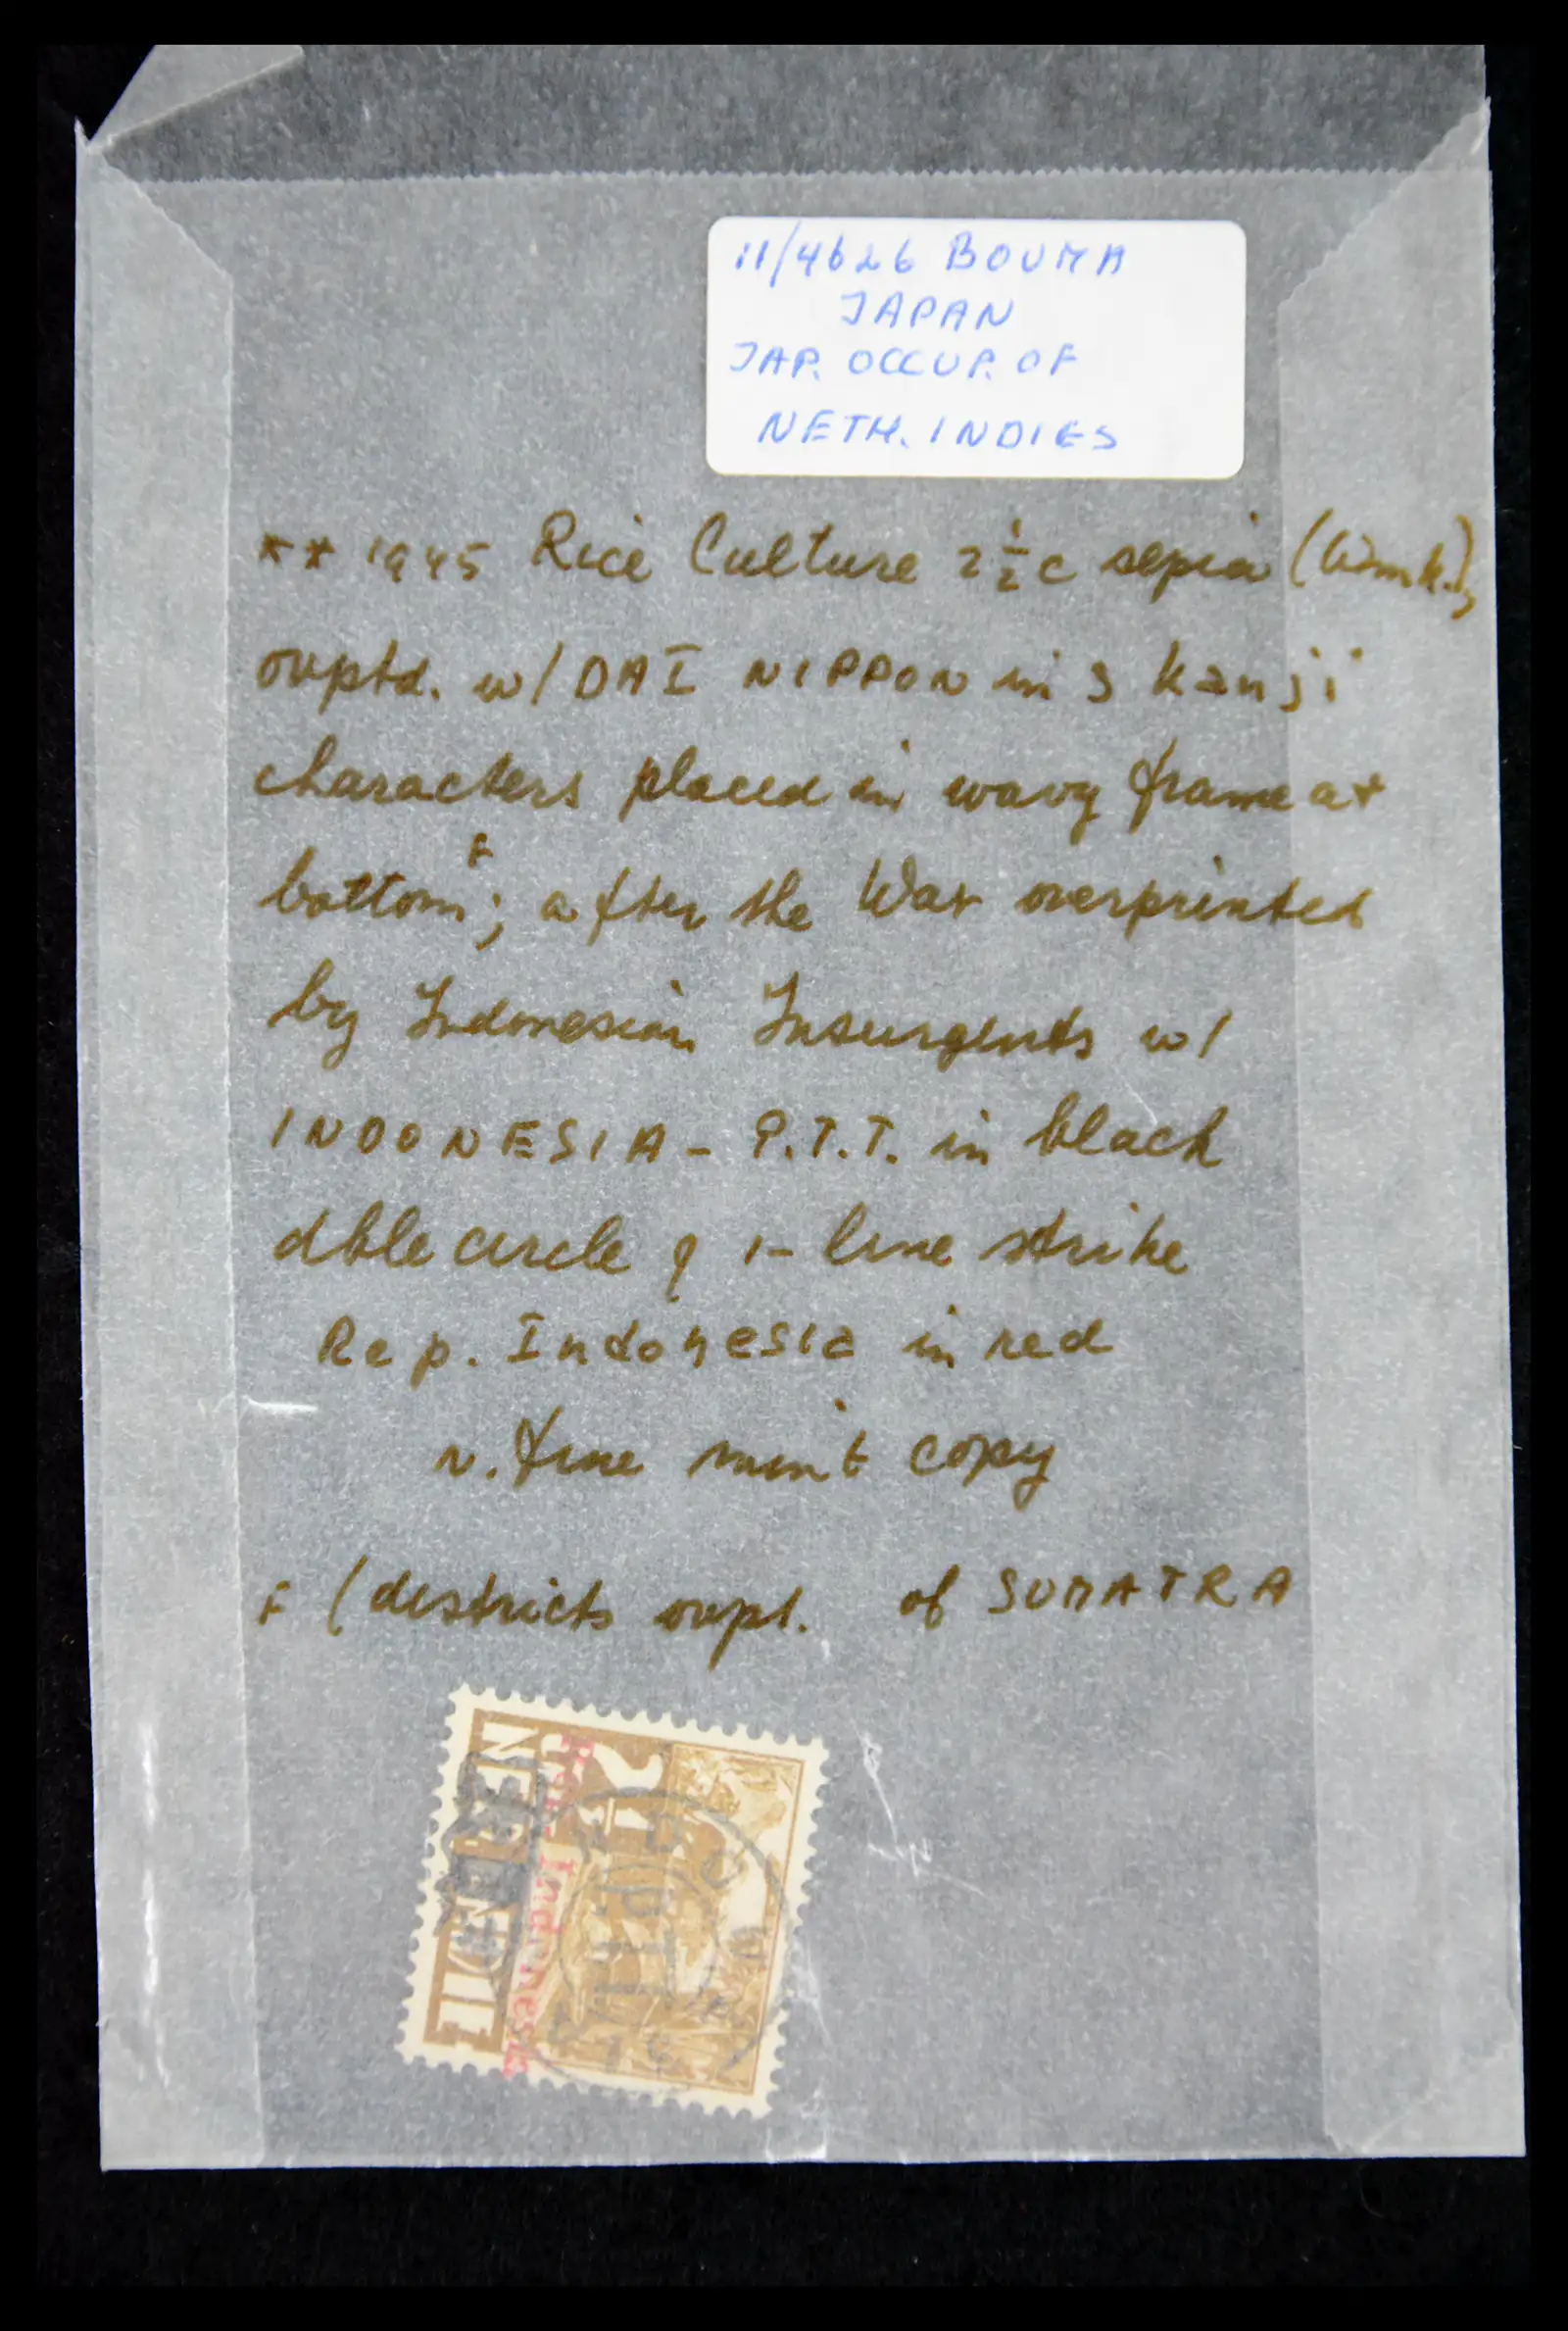 11/4626 BOUMA
JAPAN
JAP. OCCUP. OF
NETH. INDIES
** 1945 Rice Culture 2½c sepia (Wmk.),
ovptd. w/ DAI NIPPON in 3 kanji
characters placed in wavy frame at
bottom; after the War overprinted
by Indonesian Insurgents w/
INDONESIA - P.T.T. in black
dble circle & 1-line strike
Rep. Indonesia in red
v. fine mint copy
(districts ovpt. of SUMATRA
NED. INDIE
Rep. Indonesia
2½
PTT